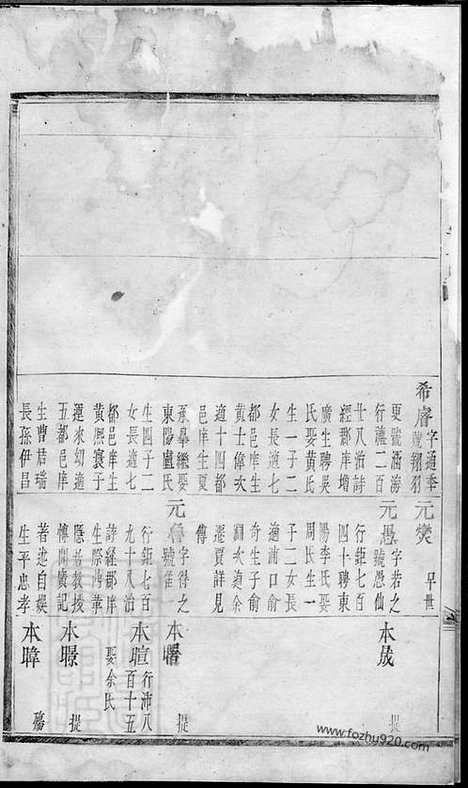 希睿 字通季
號翔羽
更號涵渤
行瀍二百
廿八治詩
經郡庠增
廣生聘吳
氏娶黃氏
生一子二
女長適七
都邑庠生
黃士偉次
適十四都
邑庠生夏
承摹繼娶
東陽盧氏
生四子二
女長適七
都邑庠生
黃熙寰子
選來幼適
五都邑庠
生曹 瑞
長孫伊昌
元燮 早世
元愚 字若之
號愚仙
行鉅七百
四十聘東
陽李氏娶
周氏生一
子二女長
適浦口俞
奇生子俞
次適余
遷賈詳見
傳
元魯 字得之
號
行鉅七百
九十八治
詩經郡庠
生際鴻
教授
博聞廣記
著述自娛
生平忠孝
本晟 提
本曙 提
本暄 行沛八
百十五
娶余氏
本暻 提
本暐 殤
www.fozhu920.com